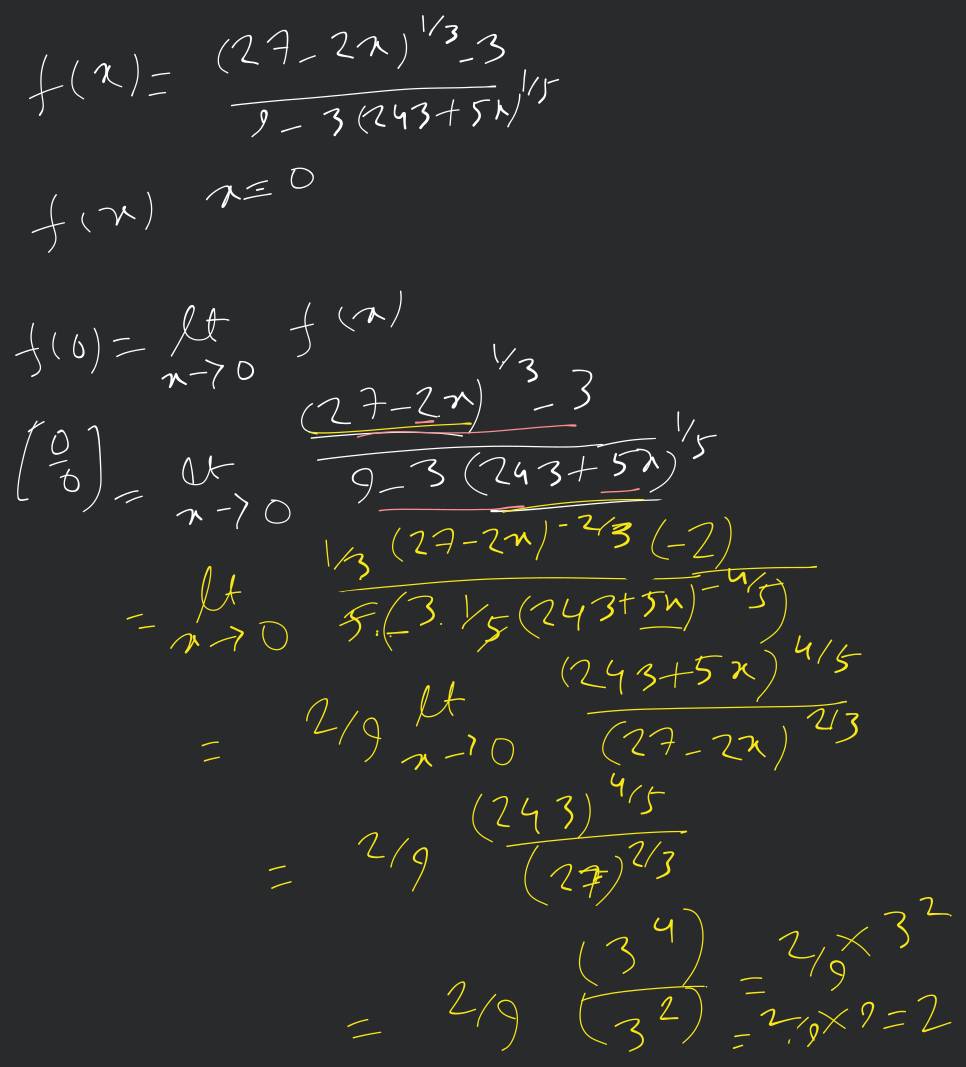 f(x) = ((27-2x)^{1/3} - 3) / (9 - 3(243+5x)^{1/5})
f(x) x = 0
f(0) = lt_{x→0} f(x)
[0/0] = lt_{x→0} ((27-2x)^{1/3} - 3) / (9 - 3(243+5x)^{1/5})
= lt_{x→0} (1/3 (27-2x)^{-2/3} (-2)) / (5.(-3.1/5 (243+5x)^{-4/5}))
= 2/9 lt_{x→0} (243+5x)^{4/5} / (27-2x)^{2/3}
= 2/9 (243)^{4/5} / (27)^{2/3}
= 2/9 (3^4) / (3^2) = 2/9 × 3^2
= 2/9 × 9 = 2